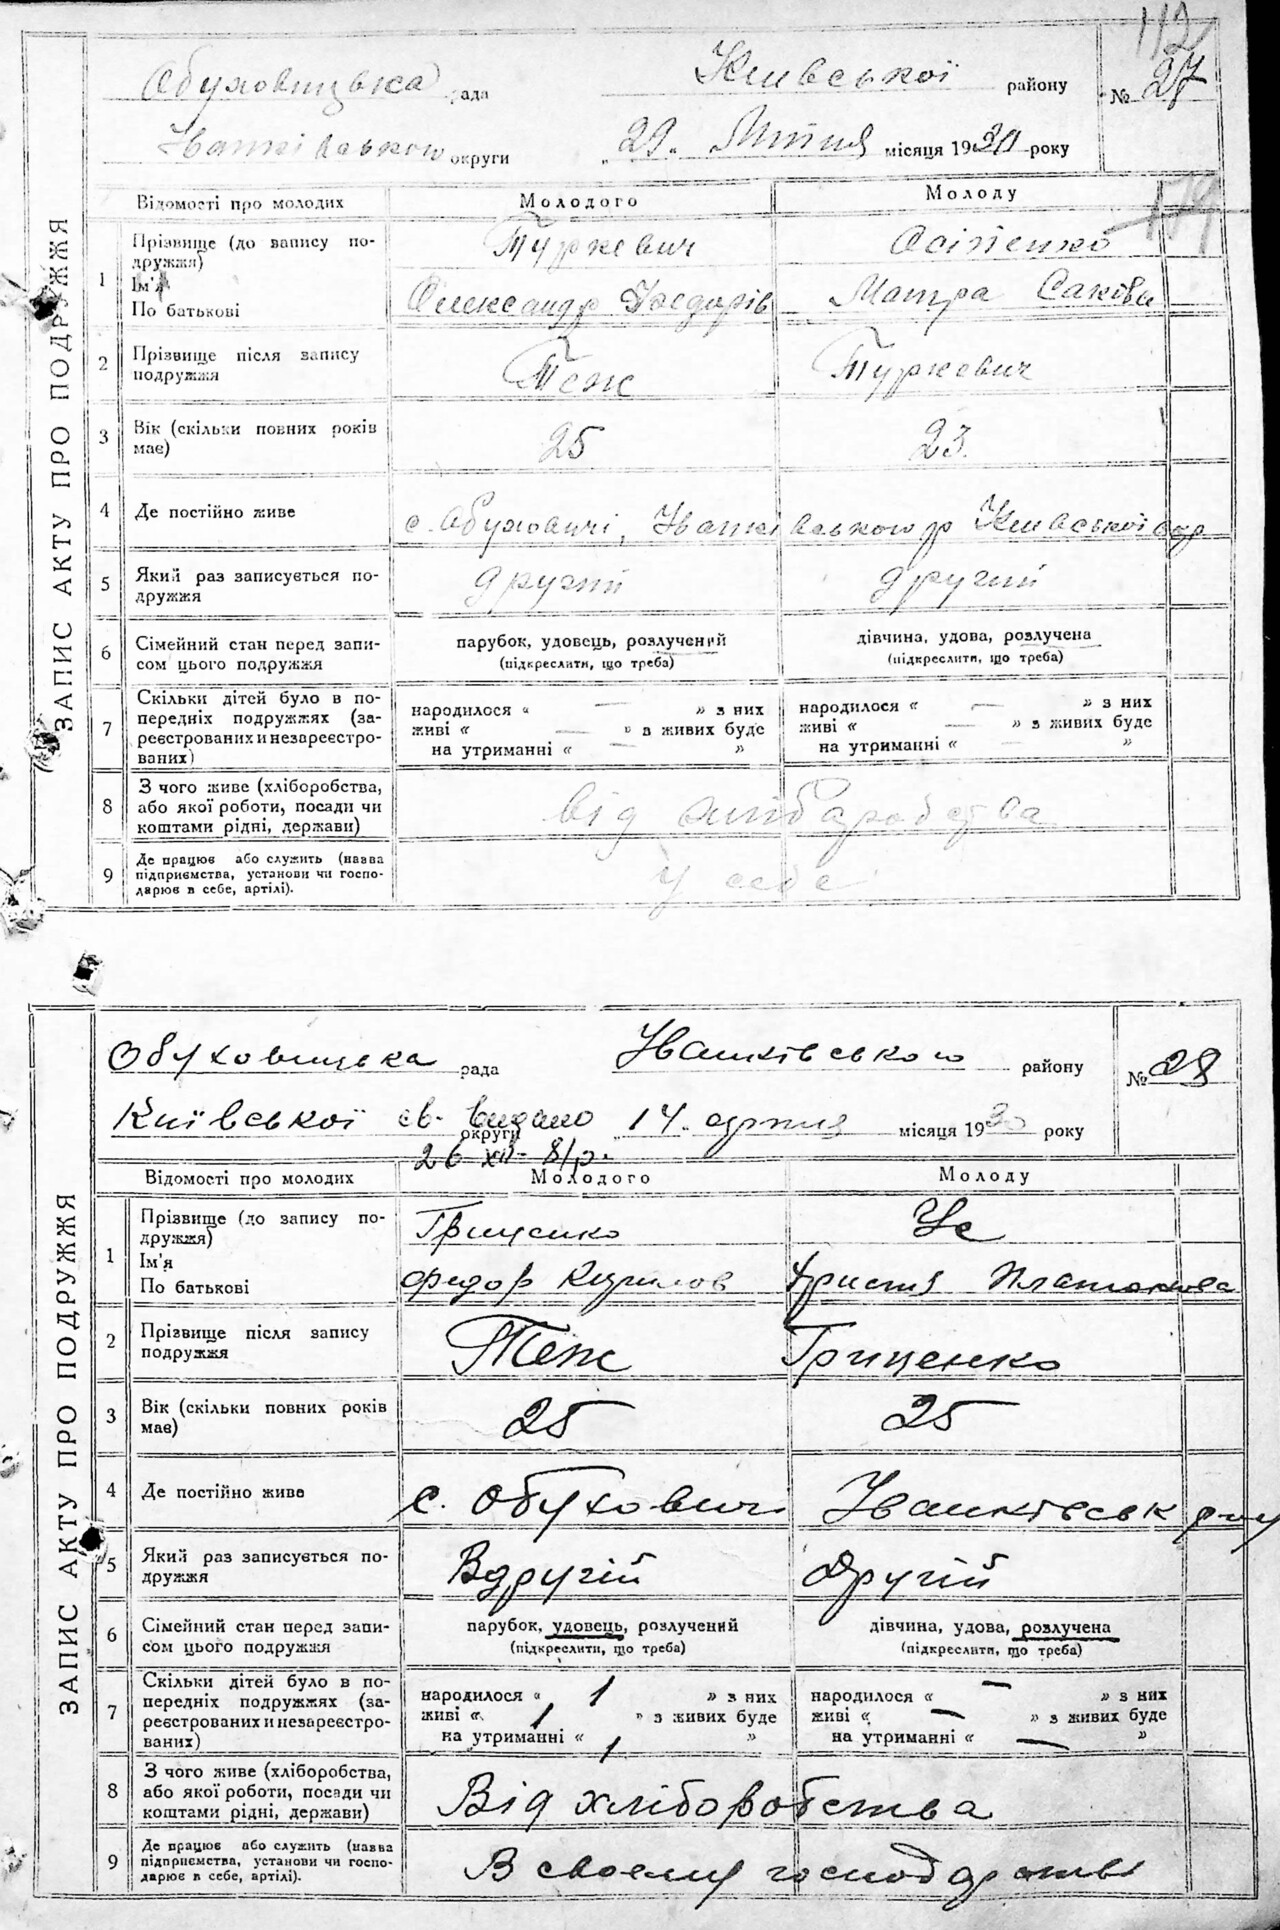 112
Обуховицька рада Київської району № 27
Іванківською округи „29„ Липня місяця 1930 року
ЗАПИС АКТУ ПРО ПОДРУЖЖЯ
Відомості про молодих Молодого Молоду
1 Прізвище (до запису подружжя) Туркевич Осіпенко
Ім'я
По батькові Олександр Хведорів Мотра Сакова
2 Прізвище після запису подружжя Теж Туркевич
3 Вік (скільки повних років має) 25 23.
4 Де постійно живе с. Обуховичі, Іванківського р Київської окр
5 Який раз записується подружжя другий другий
6 Сімейний стан перед записом цього подружжя парубок, удовець, розлучений дівчина, удова, розлучена
(підкреслити, що треба) (підкреслити, що треба)
7 Скільки дітей було в попередніх подружжях (зареєстрованих и незареєстрованих)
народилося « — » з них народилося « — » з них
живі « — » з живих буде живі « — » з живих буде
на утриманні « — » на утриманні « — »
8 З чого живе (хліборобства, або якої роботи, посади чи коштами рідні, держави) Від хліборобства
9 Де працює або служить (назва підприємства, установи чи господарює в себе, артілі). У себе
Обуховицька рада Іванківського району № 28
Київської св. видано округи „14„ серпня місяця 1930 року
26 XII
ЗАПИС АКТУ ПРО ПОДРУЖЖЯ
Відомості про молодих Молодого Молоду
1 Прізвище (до запису подружжя) Гриценко Ус
Ім'я
По батькові Федор Кирилов Христя Платонова
2 Прізвище після запису подружжя Теж Гриценко
3 Вік (скільки повних років має) 25 25
4 Де постійно живе с. Обуховичі Іванківськ р-ну
5 Який раз записується подружжя Вдругій Другій
6 Сімейний стан перед записом цього подружжя парубок, удовець, розлучений дівчина, удова, розлучена
(підкреслити, що треба) (підкреслити, що треба)
7 Скільки дітей було в попередніх подружжях (зареєстрованих и незареєстрованих)
народилося « 1 » з них народилося « — » з них
живі « 1 » з живих буде живі « — » з живих буде
на утриманні « 1 » на утриманні « — »
8 З чого живе (хліборобства, або якої роботи, посади чи коштами рідні, держави) Від хліборобства
9 Де працює або служить (назва підприємства, установи чи господарює в себе, артілі). В своєму господарстві